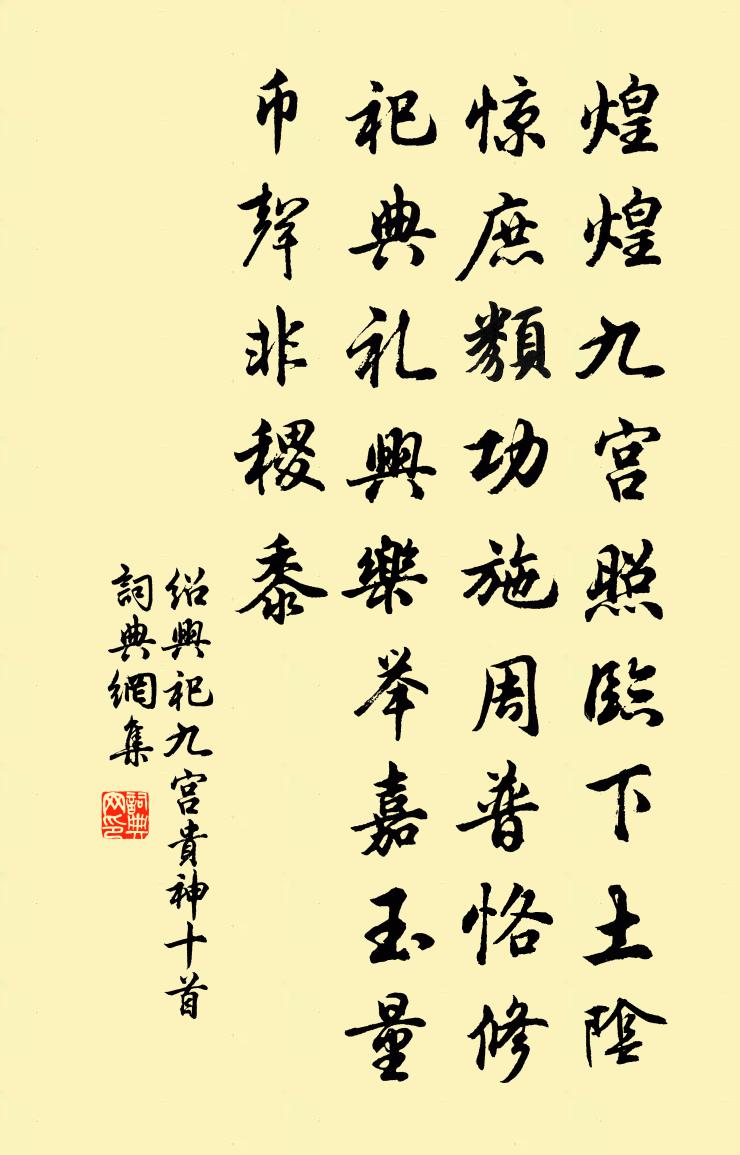 煌煌九宫照臨下土陰
惊庶類功施周普恪修
祀典礼興樂举嘉玉量
币聲非稷黍
绍興祀九宫貴神十首
詞典網集
詞典网印